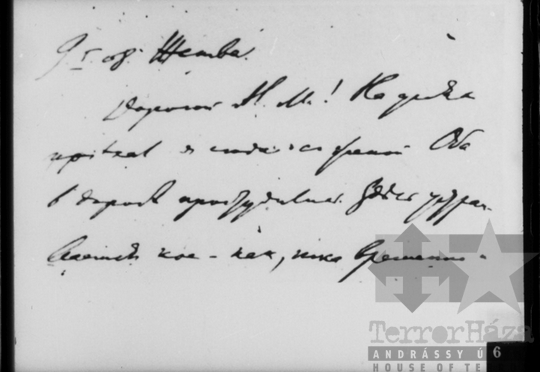 9. I. 08. Женева.
Дорогой А. М.! На днях
приехал я сюда с женой. Оба
в дороге простудились. Здесь устраи-
ваемся кое-как, пока временно -
TerrorHáza
ANDRÁSSY Ú
HOUSE OF TE
6